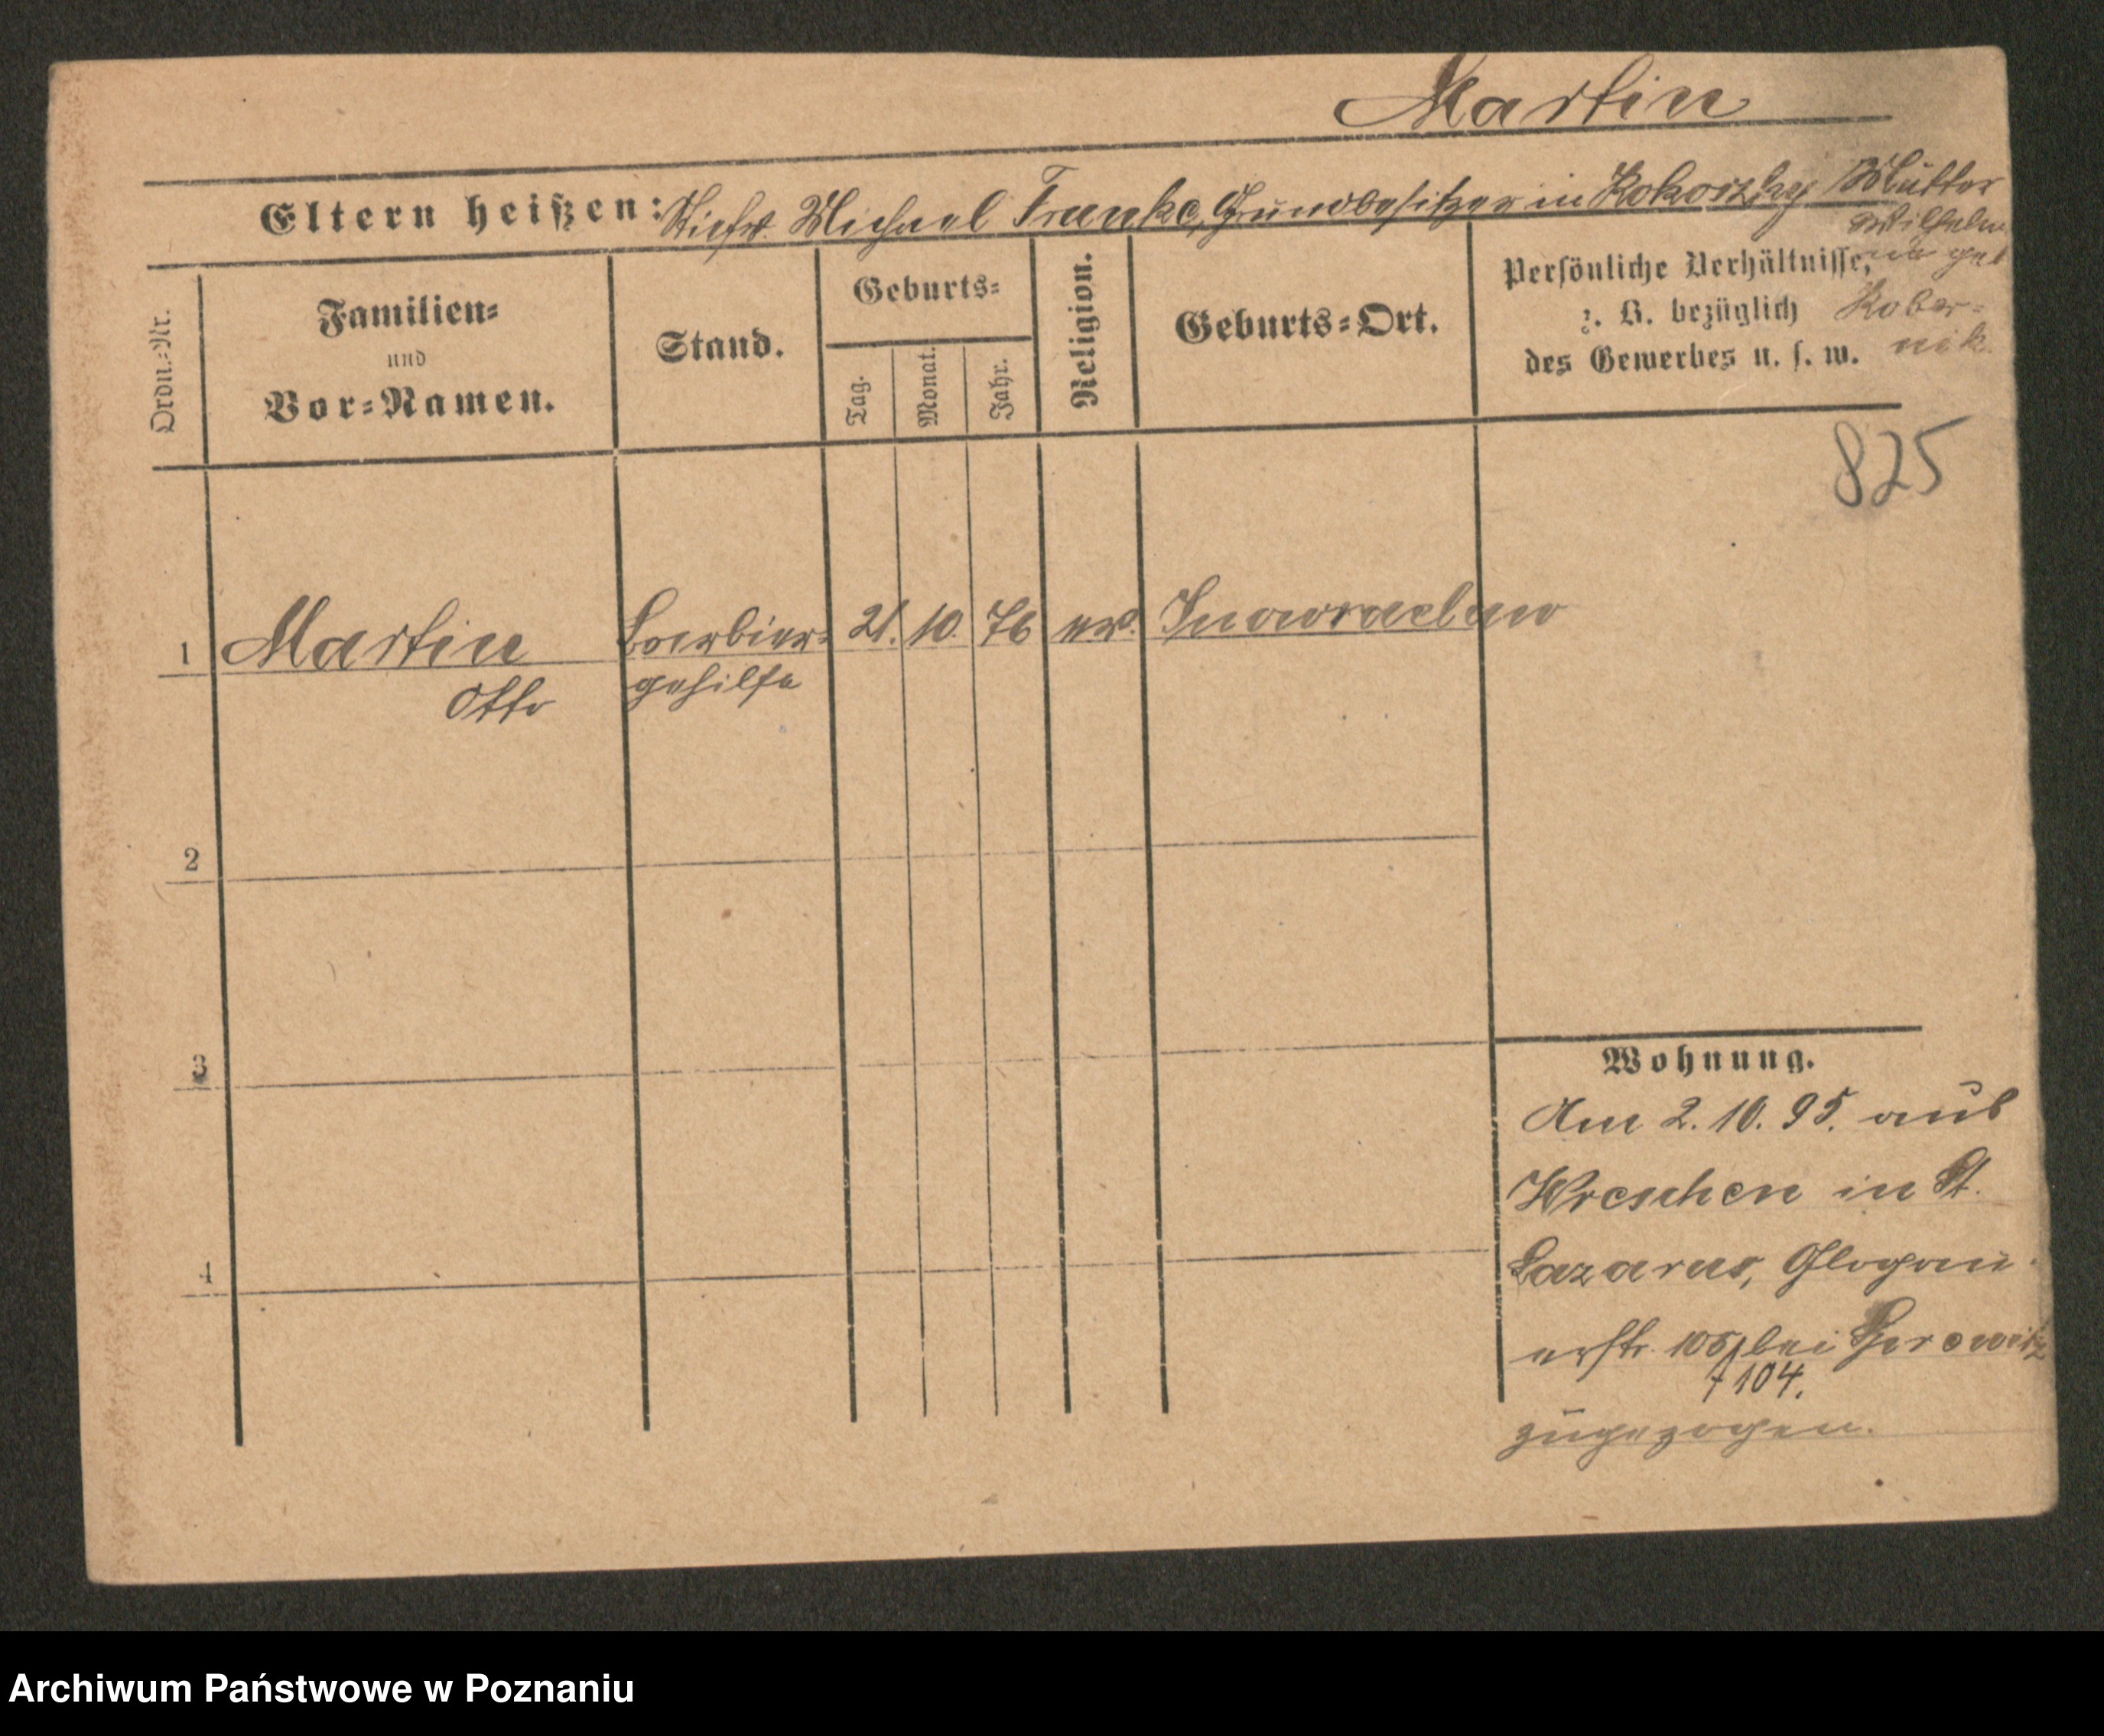 Martin
Eltern heißen: Stiefv. Michael Franke, Grundbesitzer in Kokoszky Mutter
Wilhelmi
ne geb
Kober-
nik.
Ordn.-Nr.
Familien-
und
Vor-Namen.
Stand.
Geburts-
Tag.
Monat.
Jahr.
Religion.
Geburts-Ort.
Persönliche Verhältnisse,
z. B. bezüglich
des Gewerbes u. s. w.
825
1 Martin Barbier- 21. 10. 76 ev. Inowraclaw
Otto gehilfe
2
3
4
Wohnung.
Am 2. 10. 95. aus
Wreschen in St.
Lazarus, Glogau-
erstr. 105 bei
104.
zugezogen.
Archiwum Państwowe w Poznaniu